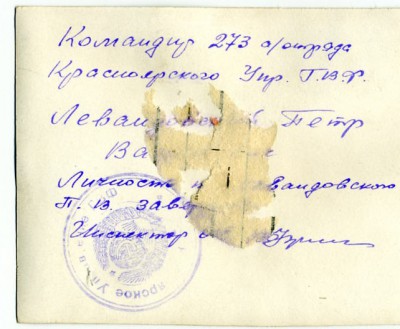 Командир 273 а/отряда
Красноярского Упр. Г.В.Ф.
Левандовский Петр
Ва
Личность Левандовского
П.В. заве
Инспектор